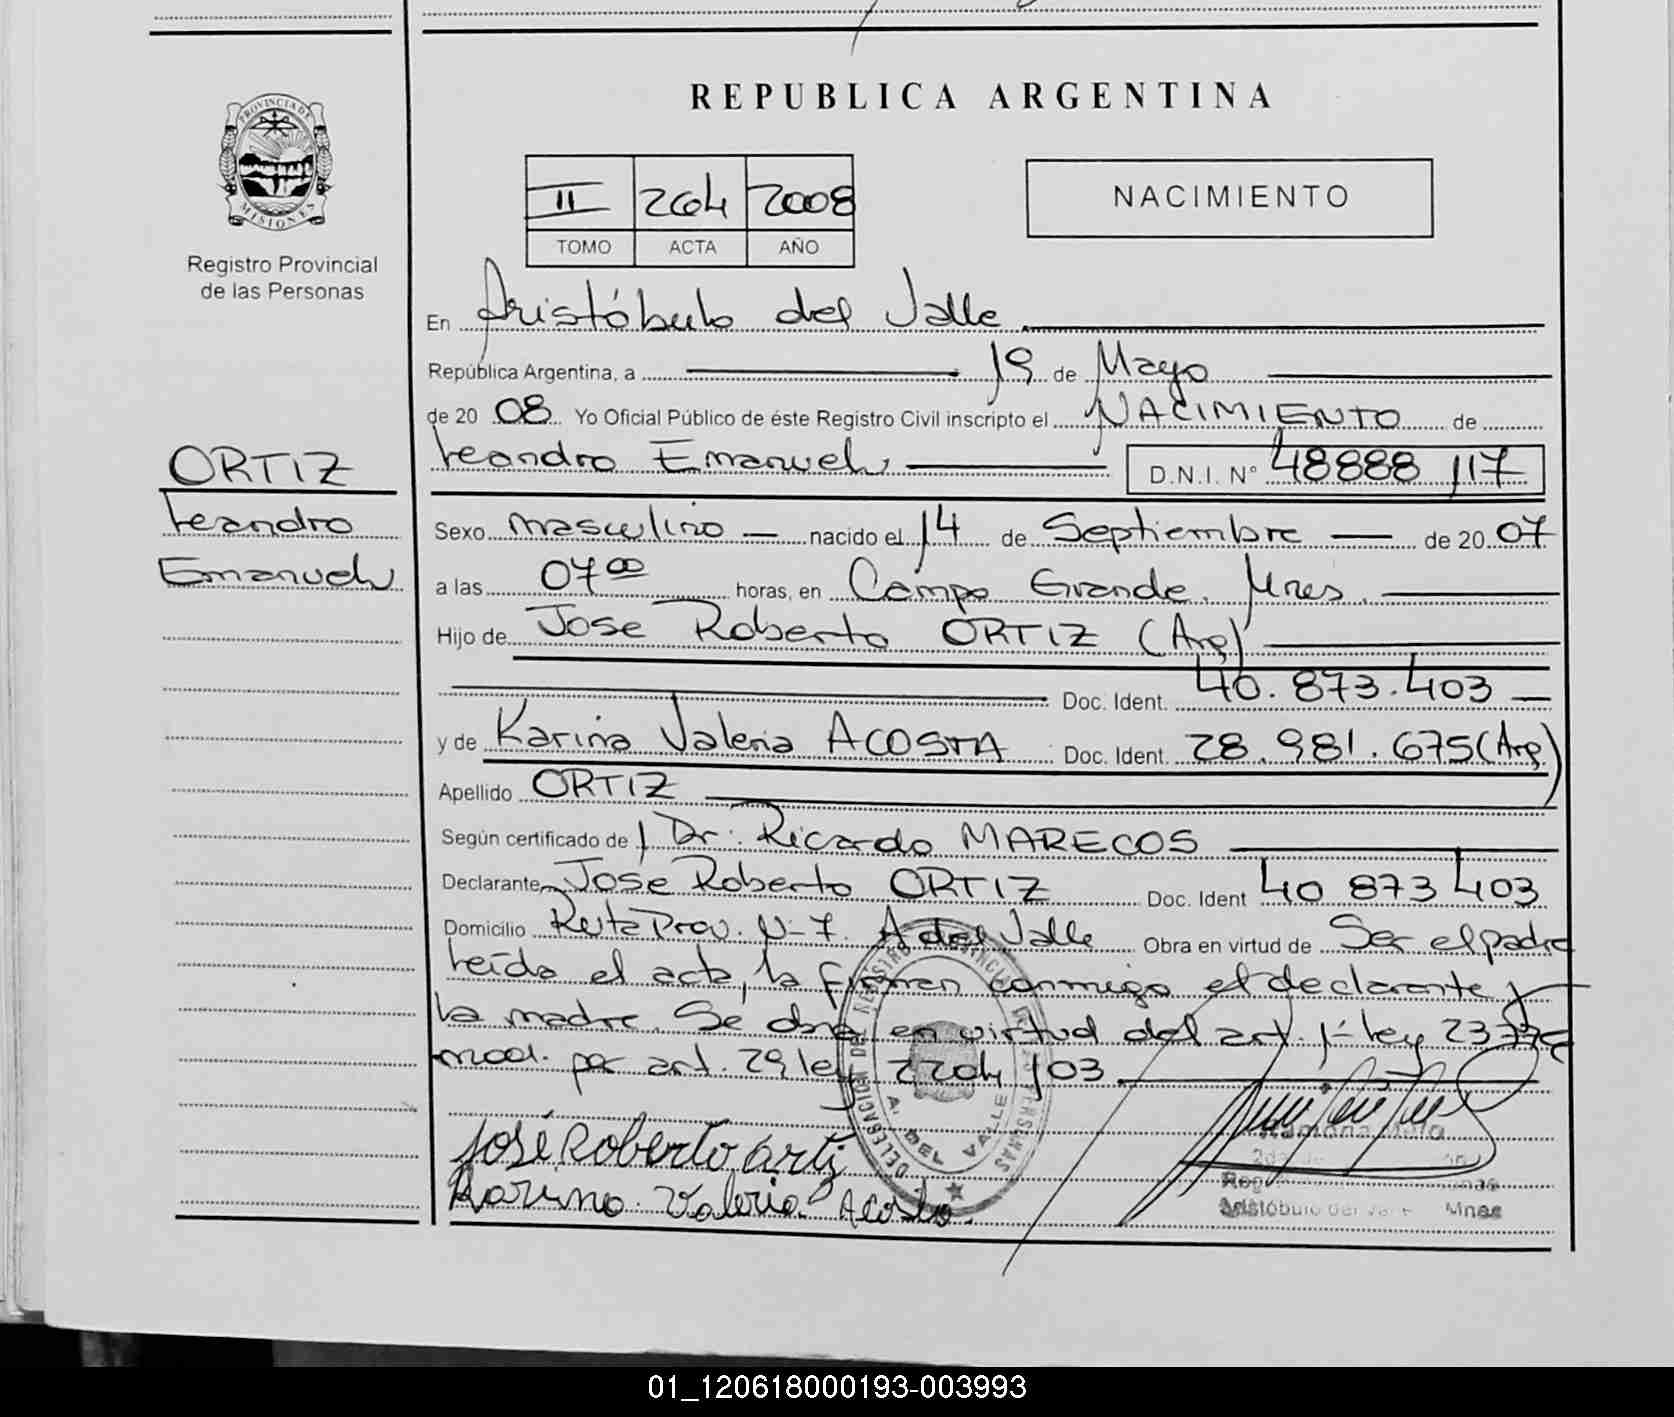 REPUBLICA ARGENTINA
PROVINCIA DE MISIONES
Registro Provincial
de las Personas
II 264 2008
TOMO ACTA AÑO
NACIMIENTO
En Aristóbulo del Valle
República Argentina, a 19 de Mayo
de 20 08 Yo Oficial Público de éste Registro Civil inscripto el NACIMIENTO de
Leandro Emanuel D.N.I. N° 48888 117
ORTIZ
Leandro
Emanuel
Sexo masculino nacido el 14 de Septiembre de 20 07
a las 07 00 horas, en Campo Grande. Mnes.
Hijo de Jose Roberto ORTIZ (Arg)
Doc. Ident. 40.873.403
y de Karina Valeria ACOSTA Doc. Ident. 28.981.675 (Arg)
Apellido ORTIZ
Según certificado de Dr: Ricardo MARECOS
Declarante Jose Roberto ORTIZ Doc. Ident 40 873 403
Domicilio Ruta Prov. N-7. A del Valle Obra en virtud de Ser el padre
Leída el acta, la firman conmigo el declarante y
la madre. Se obra en virtud del art. 1- ley
mod. por art. 29 ley 2204/03
DELEGACION DEL REGISTRO PROVINCIAL DE LAS PERSONAS
A. DEL VALLE
José Roberto orti
Karina Valeria Acosta
Ramona
Aristóbulo del Valle Mnes
01_120618000193-003993